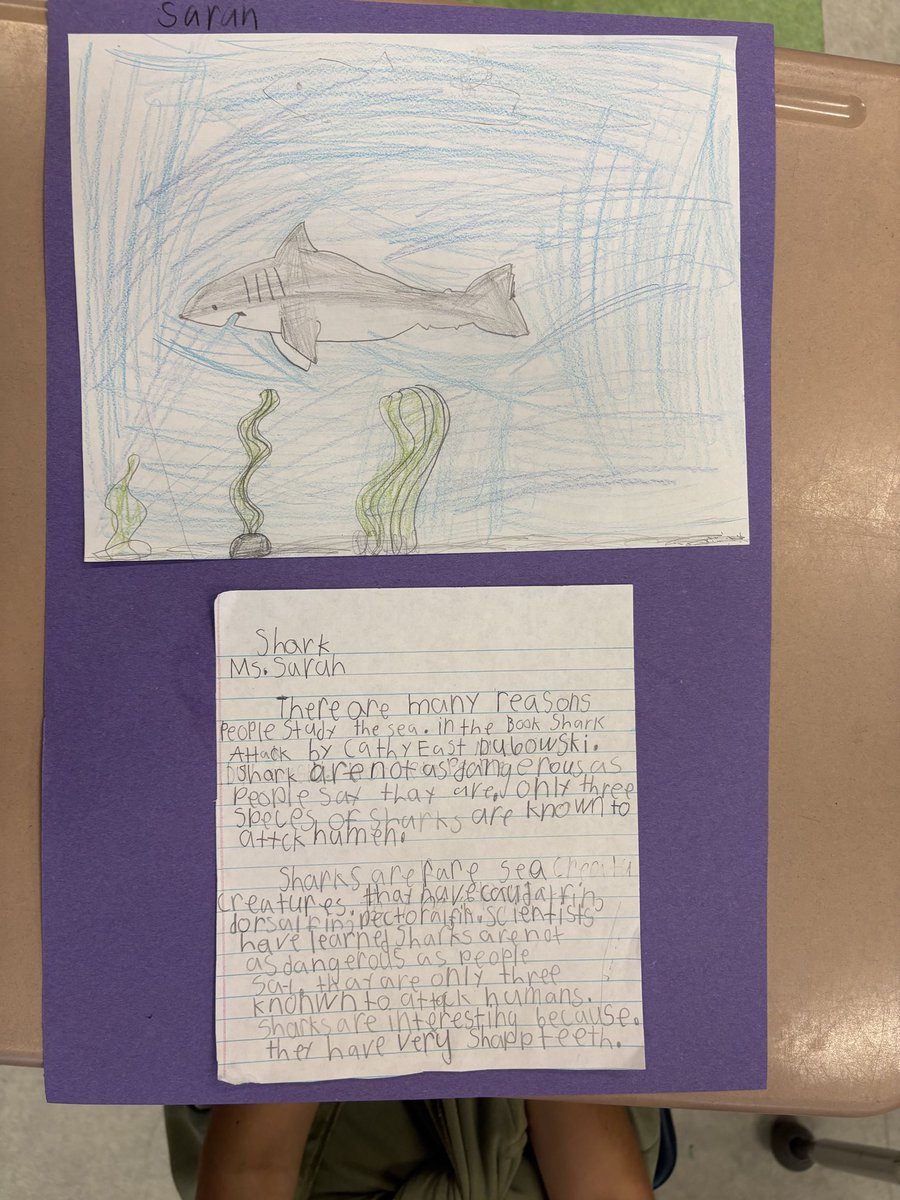 Sarah
Shark
Ms. Sarah
There are many reasons
People study the sea. in the Book Shark
Attack by Cathy East Dubowski.
Shark are not as dangerous as
people say thay are, only three
speces of sharks are known to
attck humen.
Sharks are rare sea
creatures. that have caudal fin,
dorsal fin, pectoral fin. scientists
have learned Sharks are not
as dangerous as people
say. thay are only three
knohwn to attack humans.
sharks are interesting because.
they have very shapp teeth.